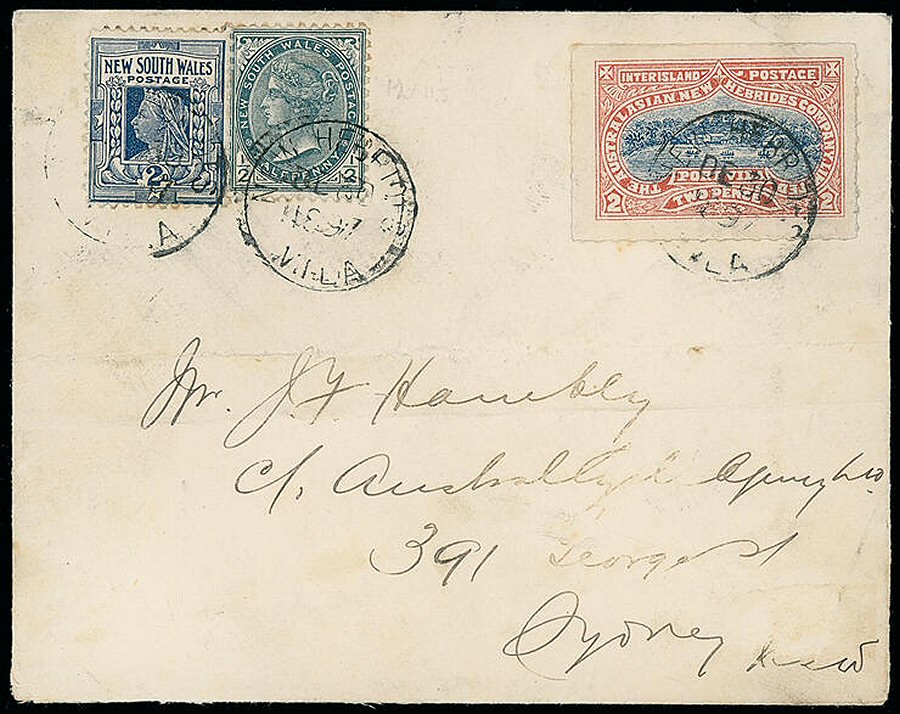 NEW SOUTH WALES
POSTAGE
2D
NEW SOUTH WALES POSTAGE
1/2 HALFPENNY 1/2
INTERISLAND POSTAGE
THE AUSTRALASIAN NEW HEBRIDES COMPANY LIMITED
PORT VILA
2 TWO PENCE 2
NEW HEBRIDES
DE 30
97
VILA
Mr. J. F. Hambly
c/.
391 George St
Sydney NSW